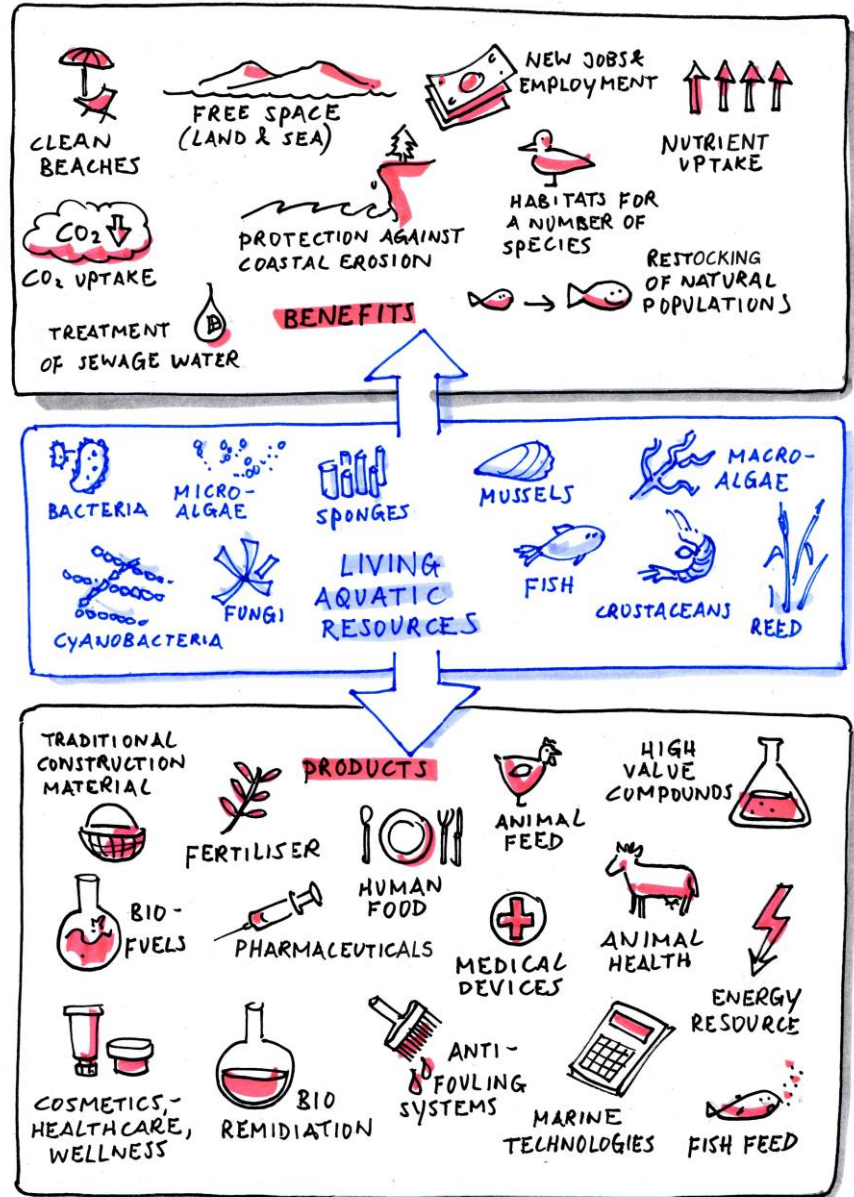 CLEAN
BEACHES
FREE SPACE
(LAND & SEA)
NEW JOBS &
EMPLOYMENT
NUTRIENT
UPTAKE
CO2
CO2 UPTAKE
PROTECTION AGAINST
COASTAL EROSION
HABITATS FOR
A NUMBER OF
SPECIES
RESTOCKING
OF NATURAL
POPULATIONS
TREATMENT
OF SEWAGE WATER
BENEFITS
BACTERIA
MICRO-
ALGAE
SPONGES
MUSSELS
MACRO-
ALGAE
CYANOBACTERIA
FUNGI
LIVING
AQUATIC
RESOURCES
FISH
CRUSTACEANS
REED
TRADITIONAL
CONSTRUCTION
MATERIAL
FERTILISER
PRODUCTS
HUMAN
FOOD
ANIMAL
FEED
HIGH
VALUE
COMPOUNDS
BIO-
FUELS
PHARMACEUTICALS
MEDICAL
DEVICES
ANIMAL
HEALTH
ENERGY
RESOURCE
COSMETICS,-
HEALTHCARE,
WELLNESS
BIO
REMIDIATION
ANTI-
FOULING
SYSTEMS
MARINE
TECHNOLOGIES
FISH FEED